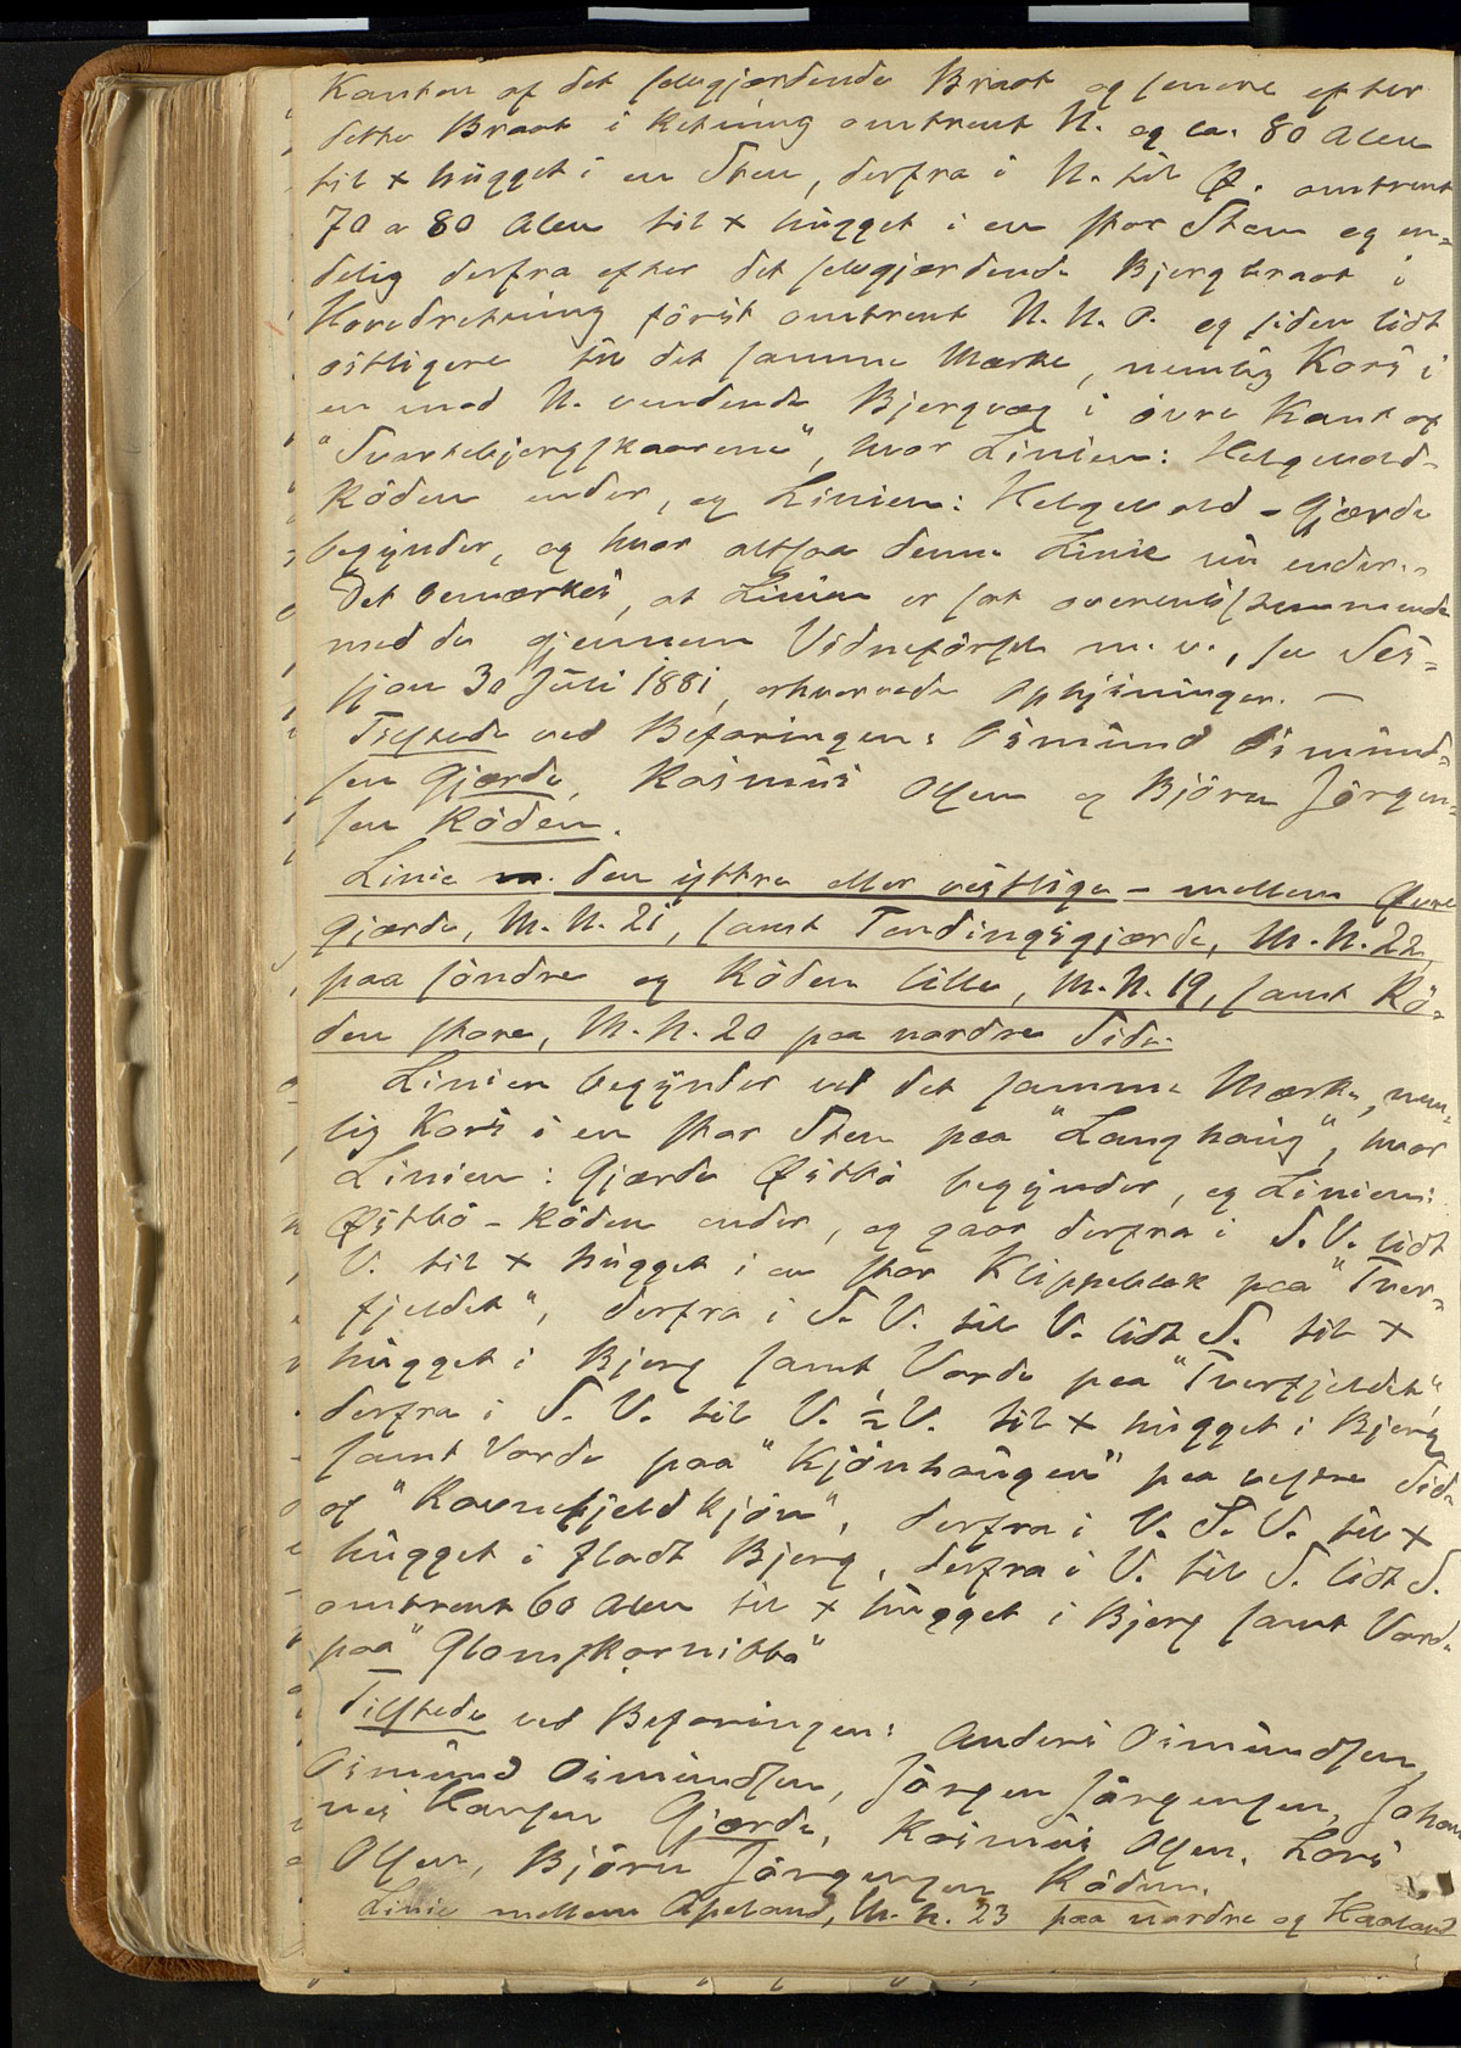 Kanten af det selvgjærdende Braat og senere efter
dette Braat i Retning omtrent N. og ca. 80 Alen
til + hugget i en Sten, derfra i N. til Ø. omtrent
70 a 80 Alen til + hugget i en stor Sten og en-
delig derfra efter det selvgjærdende Bjergbraat i
Hovedretning først omtrent N. N. O. og siden lidt
østligere til det samme Mærke, nemlig Kors i
en mod N. vendende Bjergvæg i øvre Kant af
"Svartebjergskaarene", hvor Linien: Helgevold-
Röden ender, og Linien: Helgevold - Gjærde
begynder, og hvor altsaa denne Linie nu ender.-
Det bemærkes, at Linien er sat overensstemmende
med de gjennem Vidneførsel m. v., se Ses-
sjon 30 Juli 1881, erhvervede Oplysninger. —
Tilstede ved Befaringen: Osmund Osmund-
sen Gjærde, Rasmus Olsen og Bjørn Jörgen-
sen Röden.
Linie den yttre eller vestlige - mellem Øvre
Gjærde, M. N. 21, samt Tendingsgjærde, M. N. 22,
paa söndre og Röden lille, M. N. 19, samt Rö-
den store, M. N. 20 paa nordre Side.
Linien begynder ved det samme Mærke, nem-
lig Kors i en stor Sten paa "Langhaug", hvor
Linien: Gjærde Østbö begynder, og Linien:
Østbö - Röden ender, og gaar derfra i S. V. lidt
V. til + hugget i en stor Klippeblok paa "Tver-
fjeldet", derfra i S. V. til V. lidt S. til +
hugget i Bjerg samt Varde paa "Tverfjeldet",
derfra i S. V. til V. ½ V. til + hugget i Bjerg
samt Varde paa "Kjönhaugen" paa vestre Side
af "Ravnefjeldkjön", derfra i V. S. V. til +
hugget i fladt Bjerg, derfra i V. til S. lidt S.
omtrent 60 Alen til + hugget i Bjerg samt Varde
paa "Glamskarnibba"
Tilstede ved Befaringen: Anders Osmundsen,
Osmund Osmundsen, Jörgen Jörgensen, Johan
nes Hansen Gjærde, Rasmus Olsen, Lars
Olsen, Björn Jörgensen Röden.
Linie mellem Apeland, M. N. 23 paa nordre og Haaland